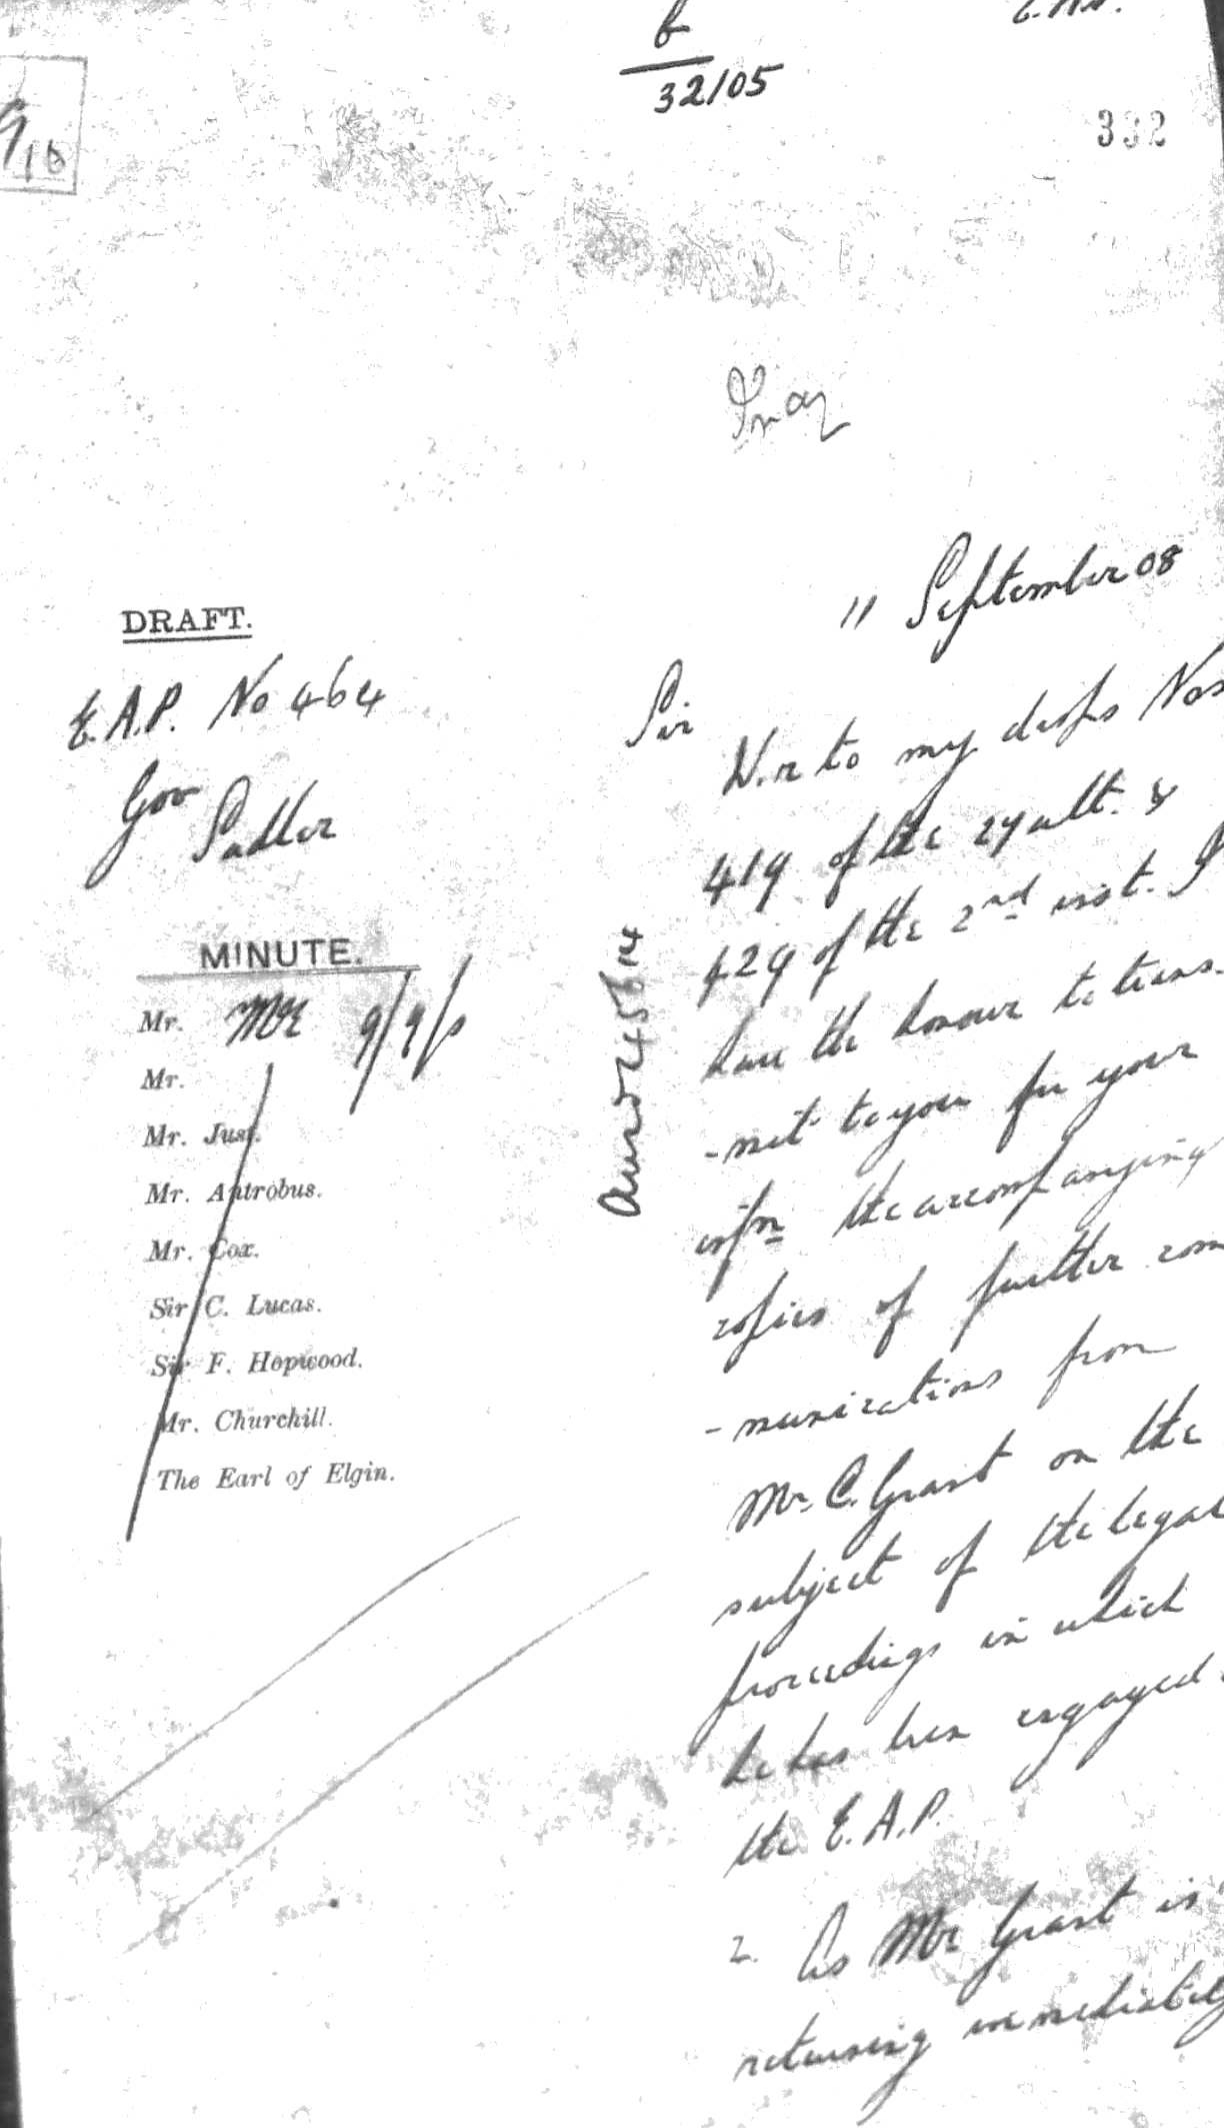 32/05
332
DRAFT.
E.A.P. No 464
Gov
Sadler
MINUTE.
Mr.
Mr.
Mr. Just.
Mr. Antrobus.
Mr. Cox.
Sir C. Lucas.
Sir F. Hopwood.
Mr. Churchill.
The Earl of Elgin.
11 September 08
Sir
W.r to my desps Nos
419 of the 27 ult. &
429 of the 2nd inst. I
have the honour to trans-
-mit to you for your
infn the accompanying
copies of further com
-munications from
Mr C. Grant on the
subject of the legal
proceedings in which
he has been engaged
the E.A.P.
2. As Mr Grant is
returning immediately